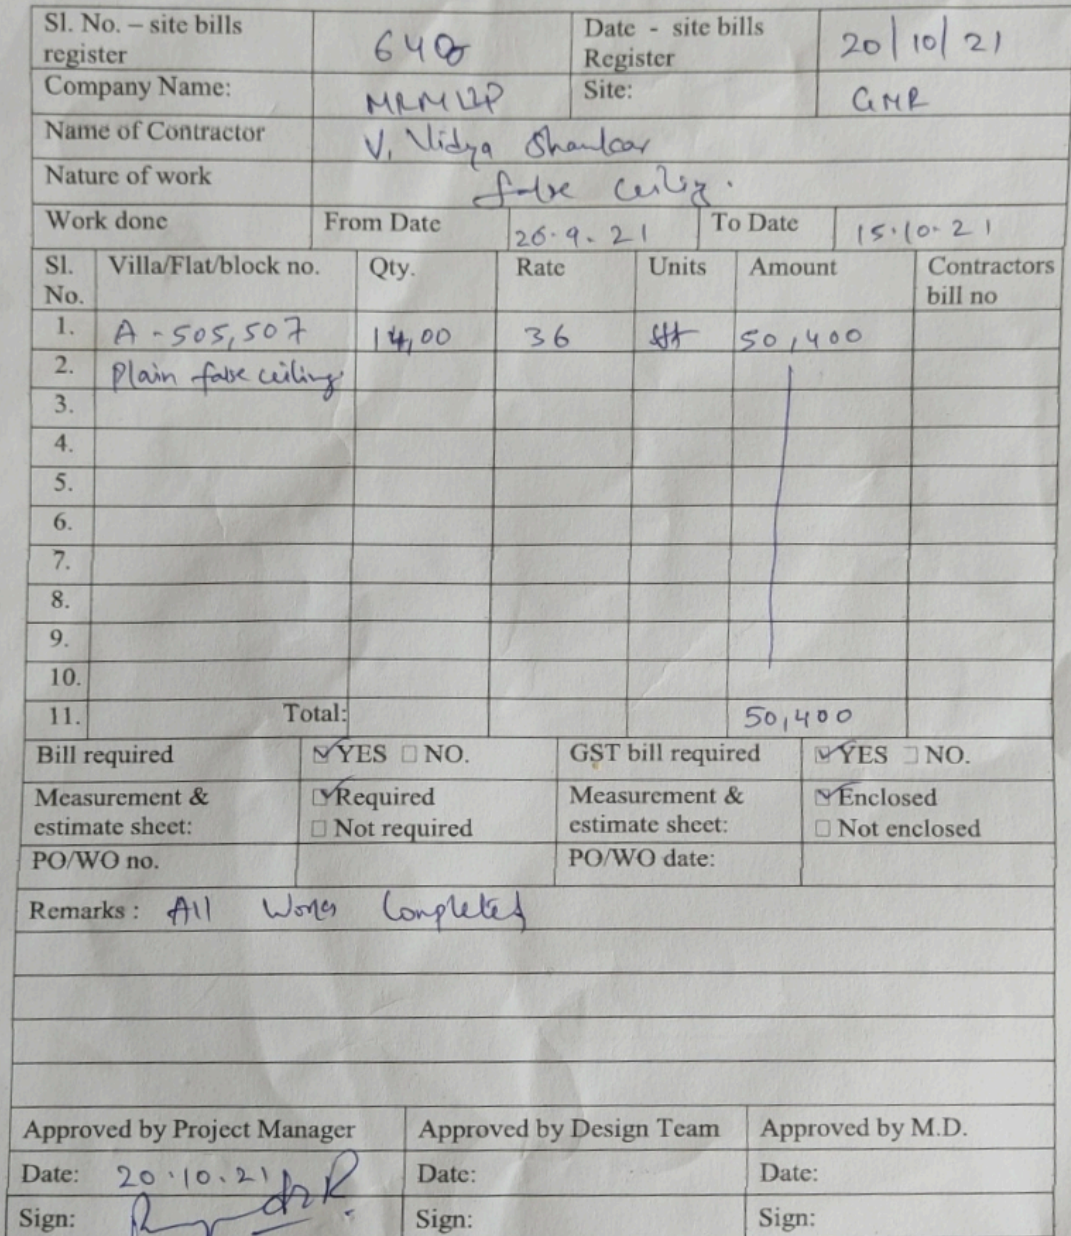 Sl. No. – site bills register 640 Date - site bills Register 20/10/21
Company Name: MRMLLP Site: GMR
Name of Contractor V. Vidya Shankar
Nature of work false ceiling.
Work done From Date 26.9.21 To Date 15.10.21
Sl. No. Villa/Flat/block no. Qty. Rate Units Amount Contractors bill no
1. A-505,507 14,00 36 sft 50,400
2. Plain false ceiling
3.
4.
5.
6.
7.
8.
9.
10.
11. Total: 50,400
Bill required ☑ YES ☐ NO. GST bill required ☑ YES ☐ NO.
Measurement & estimate sheet: ☑ Required ☐ Not required Measurement & estimate sheet: ☑ Enclosed ☐ Not enclosed
PO/WO no. PO/WO date:
Remarks : All Works Completed
Approved by Project Manager Approved by Design Team Approved by M.D.
Date: 20.10.21 Date: Date:
Sign: Sign: Sign: